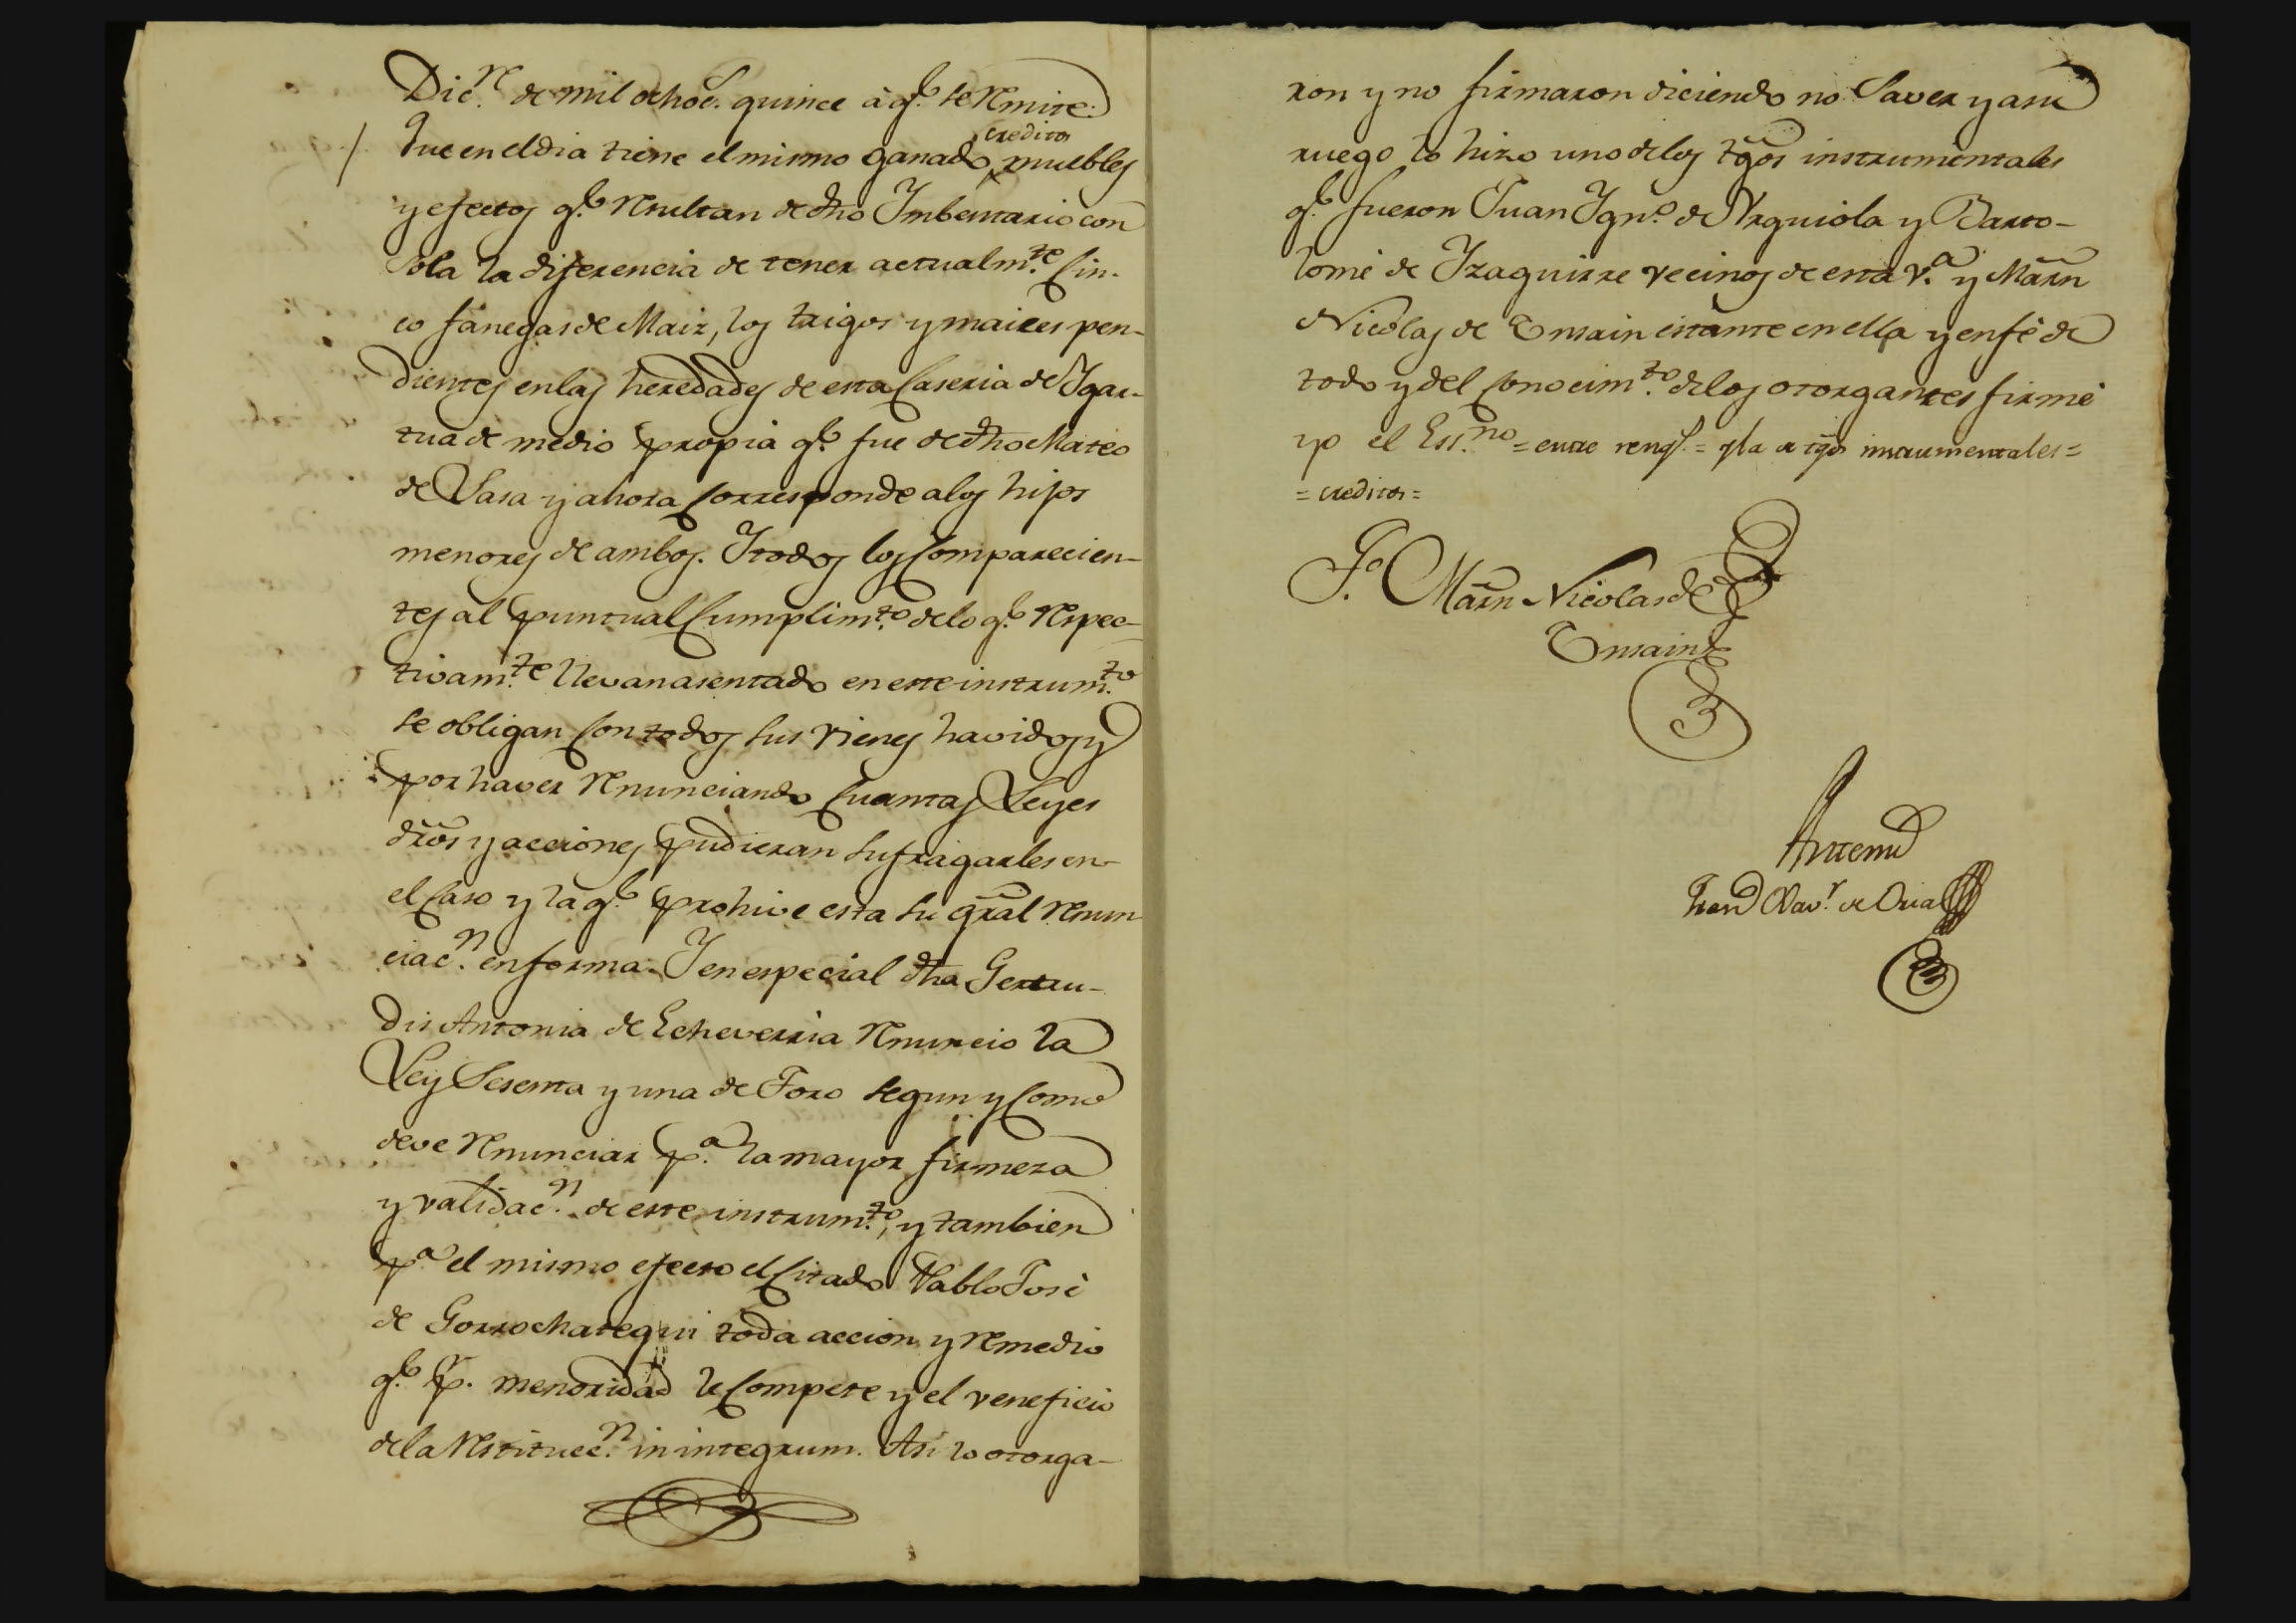 Dic.re de mil ochoc.s quince à q.e se remite.
Que en el dia tiene el mismo ganado, creditos muebles
y efectos q.e resultan de dho Imbentario con
sola la diferencia de tener actualm.te Cin-
co fanegas de Maiz, los trigos y maices pen-
dientes en las heredades de esta Caseria de Ygar-
tua de medio propia q.e fue de dho Mateo
de Sasa y ahora Corresponde a los hijos
menores de ambos. Y todos los Comparecien-
tes al puntual Cumplim.to de lo q.e respec-
tivam.te llevan asentado en este instrum.to
se obligan Con todos sus vienes havidos y
por haver renunciando Cuantas Leyes
dros y acciones pudieran sufragarles en
el Caso y la q.e prohive esta su gral renun
ciac.n en forma. Y en especial dha Gertru-
dis Antonia de Echeverria renuncio la
Ley Sesenta y una de Toro segun y Como
deve renunciar p.a la mayor firmeza
y validac.n de este instrum.to, y tambien
p.a el mismo efecto el Citado Pablo José
de Gorrochategui toda accion y remedio
q.e p.r menoridad le Compete y el veneficio
de la restitucc.n in integrum. Asi lo otorga-
ron y no firmaron diciendo no Saver y a su
ruego lo hizo uno de los tgos instrumentales
q.e fueron Juan Ygn.o de Urquiola y Barto-
lomé de Yzaguirre vecinos de esta V.a y Marn
Nicolas de Emsain estante en ella y en fé de
todo y del Conocim.to de los otorgantes firmé
yo el Ess.no = entre rengs = tgos instrumentales =
= creditos =
T.o Marn Nicolas de
Emsain
Antemi
Xav.r de Oria